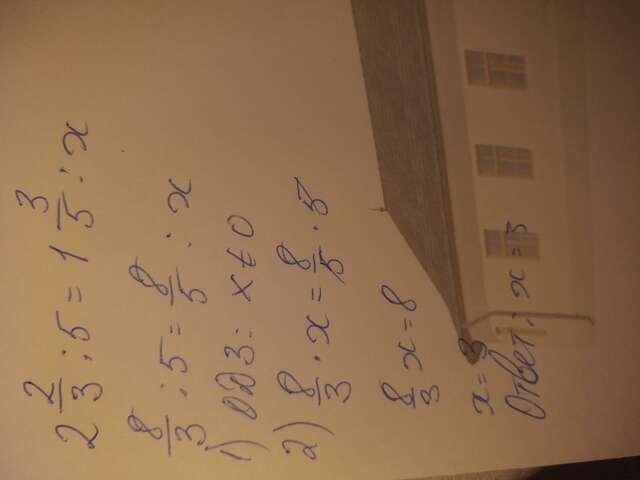 2 2/3 : 5 = 1 3/5 : x
8/3 : 5 = 8/5 : x
1) ОДЗ: x ≠ 0
2) 8/3 · x = 8/5 · 5
8/3 x = 8
x = 3
Ответ: x = 3